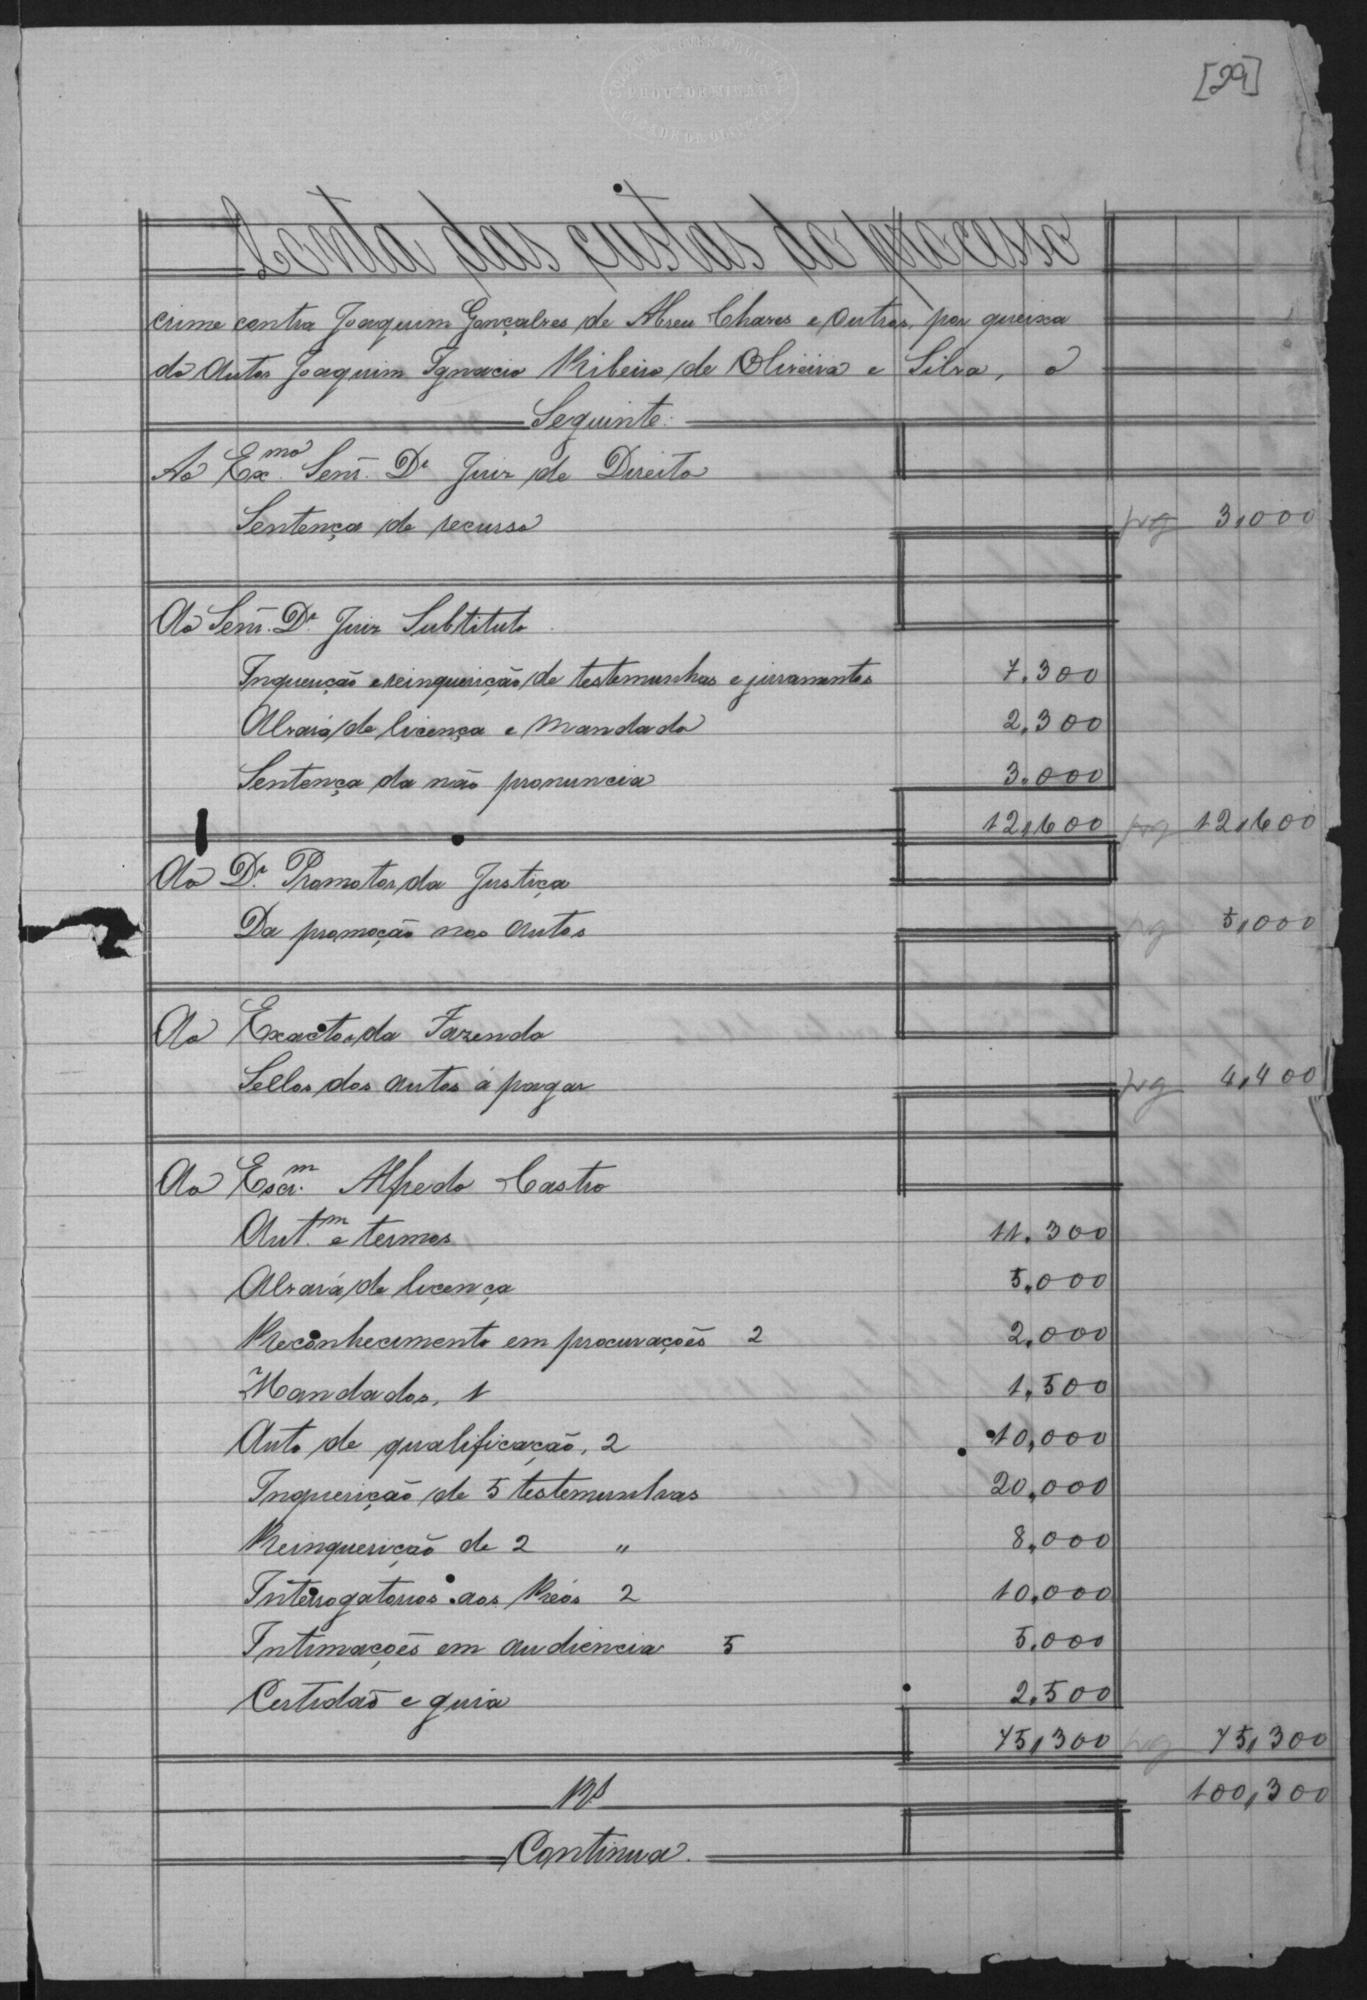 [29]
Conta das custas do processo
crime contra Joaquim Gonçalves de Abreu Chaves e outros, por queixa
do Autor Joaquim Ignacio Ribeiro de Oliveira e Silva, o
Seguinte:
Ao Ex.mo Senr. Dr Juiz de Direito
Sentença de recurso pg 3,000
Ao Senr. Dr. Juiz Substituto
Inquerição e reinquerição de testemunhas e juramentos 7.300
Alvará de licença e mandado 2.300
Sentença da não pronuncia 3.000
12,600 pg 12,600
Ao Dr. Promotor da Justiça
Da promoção nos autos pg 5,000
Ao Exactor da Fazenda
Sellos dos autos á pagar pg 4,400
Ao Escr.m Alfredo Castro
Aut.m e termos 11.300
Alvará de licença 5.000
Reconhecimento em procurações 2 2.000
Mandados, 1 1,500
Auto de qualificação, 2 10,000
Inquerição de 5 testemunhas 20,000
Reinquerição de 2 " 8,000
Interrogatorios aos Réos 2 10,000
Intimações em audiencia 5 5,000
Certidão e guia 2,500
75,300 pg 75,300
RS 100,300
Continua.